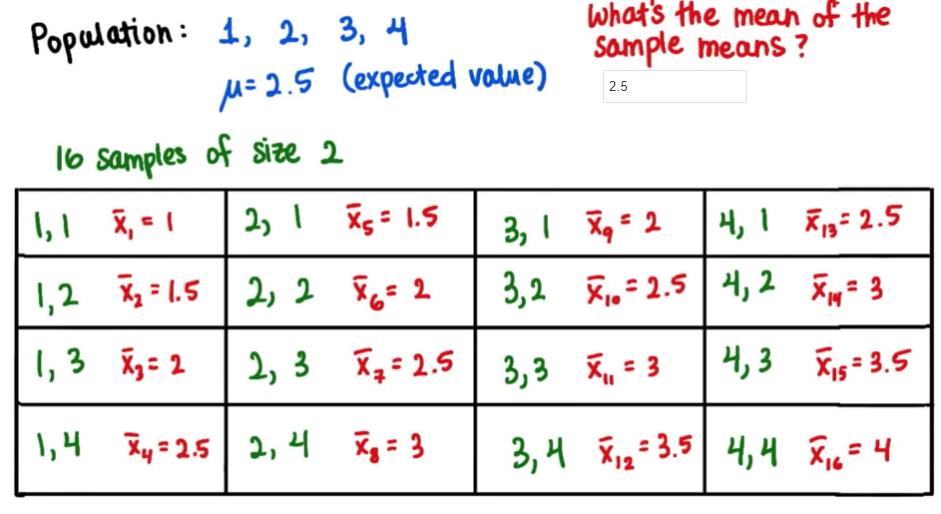 Population: 1, 2, 3, 4
μ = 2.5 (expected value)
What's the mean of the
sample means?
2.5
16 samples of size 2
1, 1 x̄₁ = 1 2, 1 x̄₅ = 1.5 3, 1 x̄₉ = 2 4, 1 x̄₁₃ = 2.5
1, 2 x̄₂ = 1.5 2, 2 x̄₆ = 2 3, 2 x̄₁₀ = 2.5 4, 2 x̄₁₄ = 3
1, 3 x̄₃ = 2 2, 3 x̄₇ = 2.5 3, 3 x̄₁₁ = 3 4, 3 x̄₁₅ = 3.5
1, 4 x̄₄ = 2.5 2, 4 x̄₈ = 3 3, 4 x̄₁₂ = 3.5 4, 4 x̄₁₆ = 4